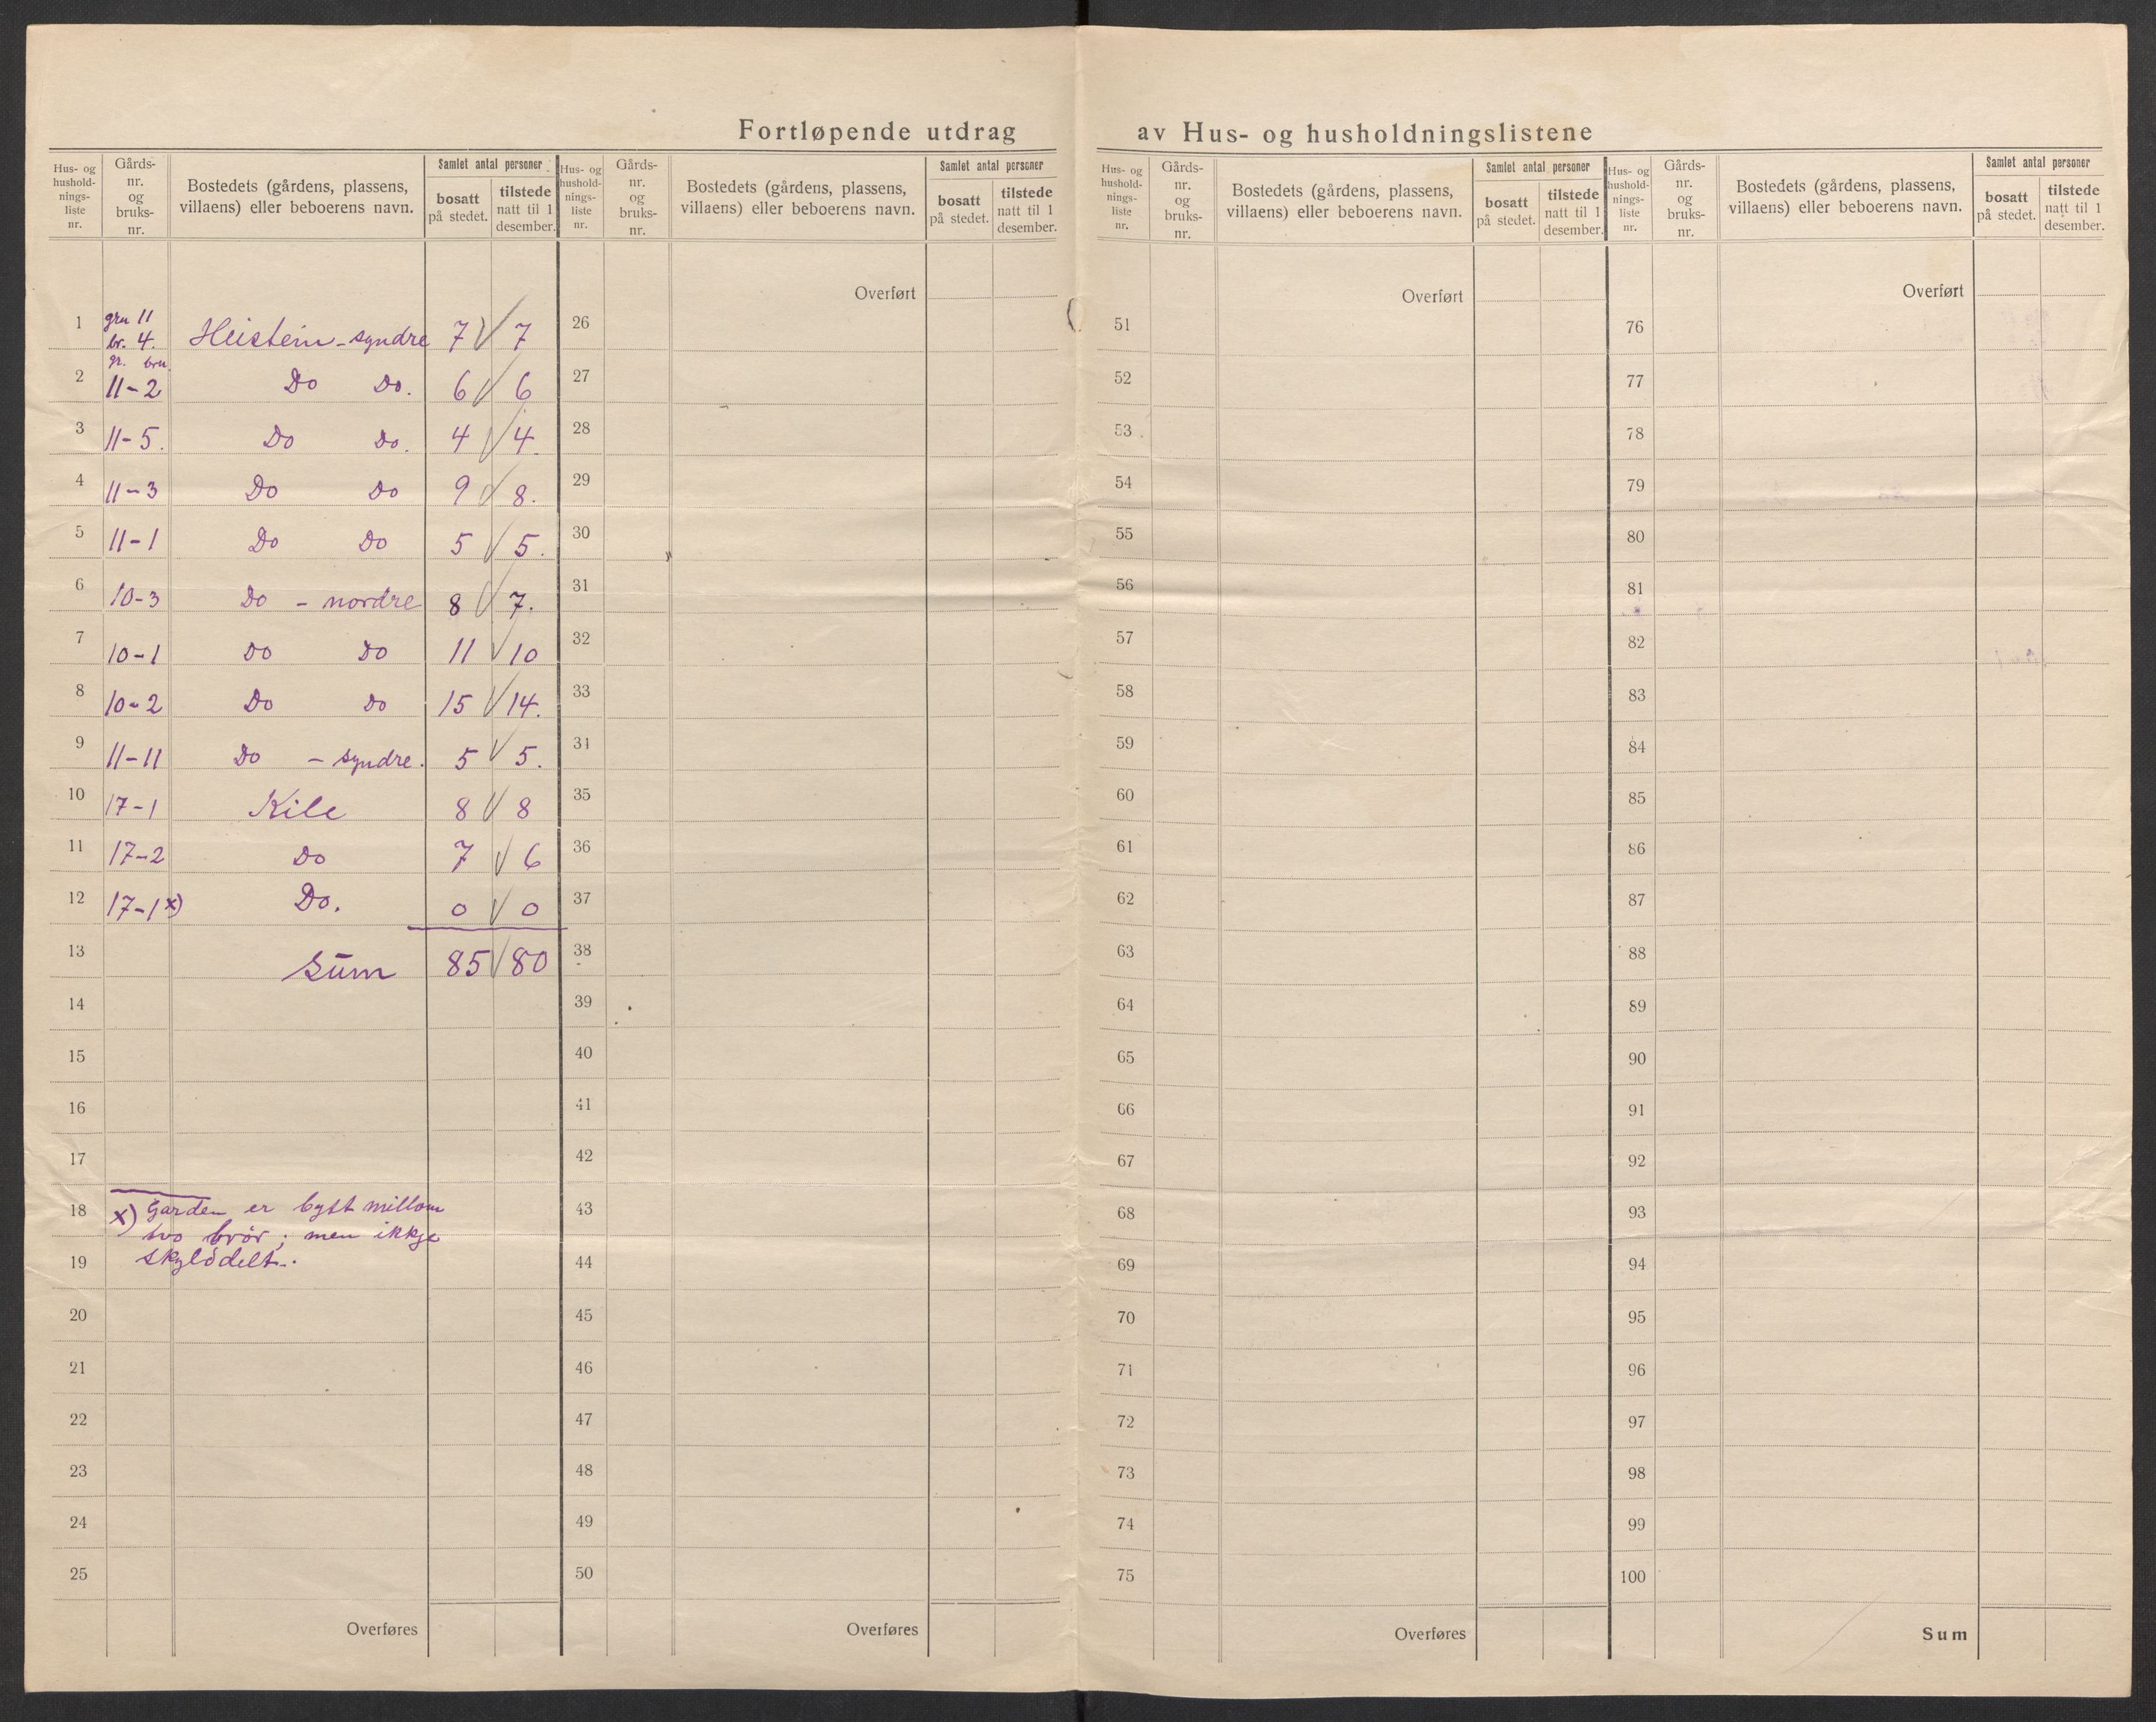 Fortløpende utdrag av Hus- og husholdningslistene
Hus- og hushold-nings-liste nr. Gårds-nr. og bruks-nr. Bostedets (gårdens, plassens, villaens) eller beboerens navn. Samlet antal personer bosatt på stedet. tilstede natt til 1 desember.
Hus- og hushold-nings-liste nr. Gårds-nr. og bruks-nr. Bostedets (gårdens, plassens, villaens) eller beboerens navn. Samlet antal personer bosatt på stedet. tilstede natt til 1 desember.
Hus- og hushold-nings-liste nr. Gårds-nr. og bruks-nr. Bostedets (gårdens, plassens, villaens) eller beboerens navn. Samlet antal personer bosatt på stedet. tilstede natt til 1 desember.
Hus- og hushold-nings-liste nr. Gårds-nr. og bruks-nr. Bostedets (gårdens, plassens, villaens) eller beboerens navn. Samlet antal personer bosatt på stedet. tilstede natt til 1 desember.
1 grn 11 br. 4. Heistein - syndre 7 7
2 gr. brn. 11-2 Do Do. 6 6
3 11-5. Do Do. 4 4.
4 11-3 Do Do 9 8.
5 11-1 Do Do 5 5.
6 10-3 Do - nordre 8 7.
7 10-1 Do Do 11 10
8 10-2 Do Do 15 14.
9 11-11 Do - syndre. 5 5.
10 17-1 Kile 8 8
11 17-2 Do 7 6
12 17-1 x) Do. 0 0
13 Sum 85 80
14
15
16
17
18 x) Garden er bytt millom
tvo brör; men ikkje
19 skylddelt-.
20
21
22
23
24
25
Overføres
Overført
26
27
28
29
30
31
32
33
34
35
36
37
38
39
40
41
42
43
44
45
46
47
48
49
50
Overføres
Overført
51
52
53
54
55
56
57
58
59
60
61
62
63
64
65
66
67
68
69
70
71
72
73
74
75
Overføres
Overført
76
77
78
79
80
81
82
83
84
85
86
87
88
89
90
91
92
93
94
95
96
97
98
99
100
Sum